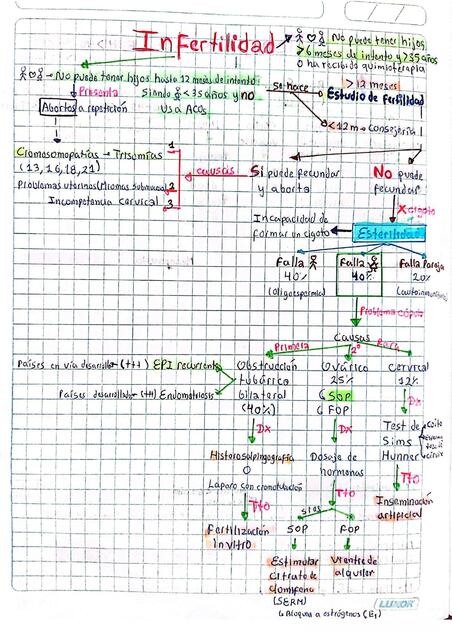 Infertilidad
No puede tener hijos
> 6 meses de intento y ≥35 años
o ha recibido quimioterapia
No puede tener hijos hasta 12 meses de intento
Siendo < 35 años y no
Usa ACOs
Presenta
Abortos a repetición
se hace
> 12 meses
Estudio de Fertilidad
< 12 m → consejería
Cromosomopatías → Trisomías
(13, 16, 18, 21)
1
Problemas uterinos (Miomas submucoso)
2
Incompetencia cervical
3
causas
Si puede fecundar
y aborta
No puede
fecundar
X cigoto
Incapacidad de
formar un cigoto
Esterilidad
Falla
40%
(oligospermia)
Falla
40%
Falla Pareja
20%
Problema cópula
Causas
Primera
2°
Rara
Países en vía desarrollo → (+++) EPI recurrente
Países desarrollados → (++) Endometriosis
Obstrucción
tubárica
bilateral
(40%)
Dx
Histerosalpingografía
o
Laparo con cromotubación
Tto
Fertilización
in vitro
Ovárico
25%
SOP
FOP
Dx
Dosaje de
hormonas
Tto
si es
SOP
FOP
Estimular
citrato de
clomifeno
(SERM)
↳ Bloquea a estrógenos (E₁)
Vientre de
alquiler
Cervical
12%
Dx
Test de
Sims
Hunner
coito
Tto
Inseminación
artificial
LUXOR